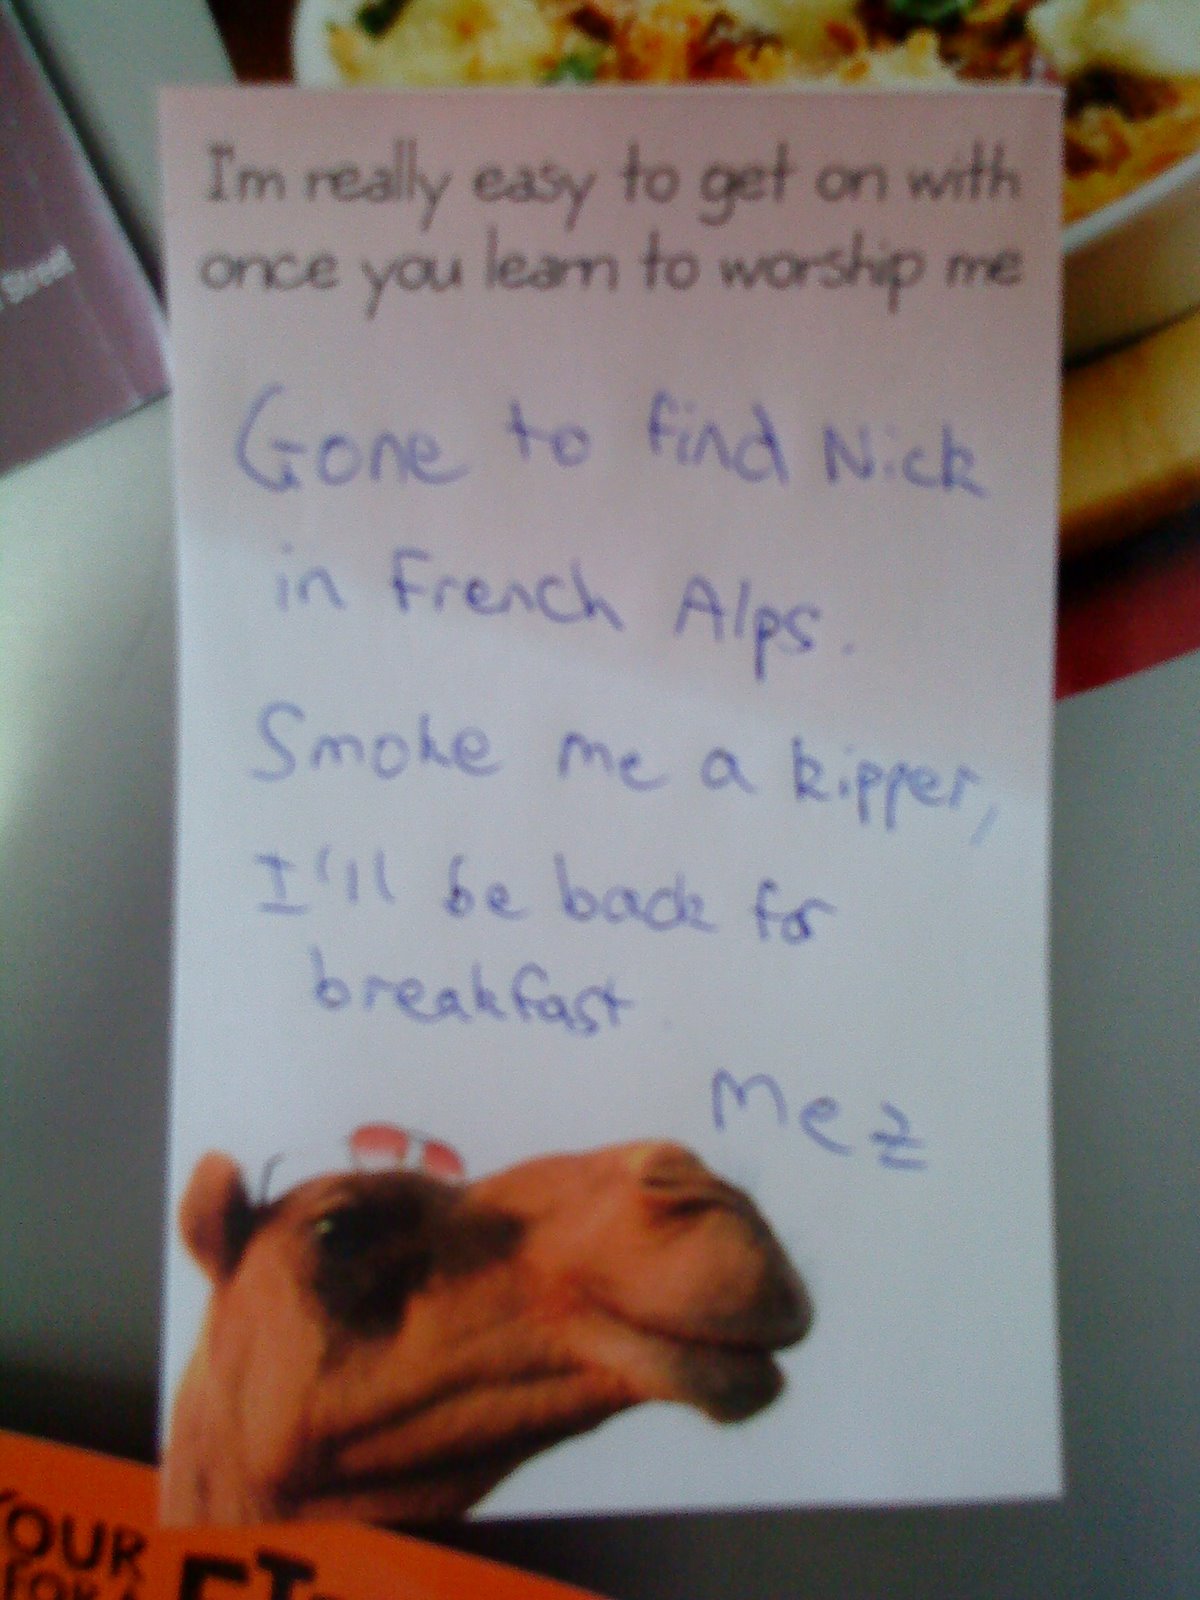 I'm really easy to get on with
once you learn to worship me
Gone to find Nick
in French Alps.
Smoke me a kipper,
I'll be back for
breakfast
Mez
Street
YOUR
FOR A